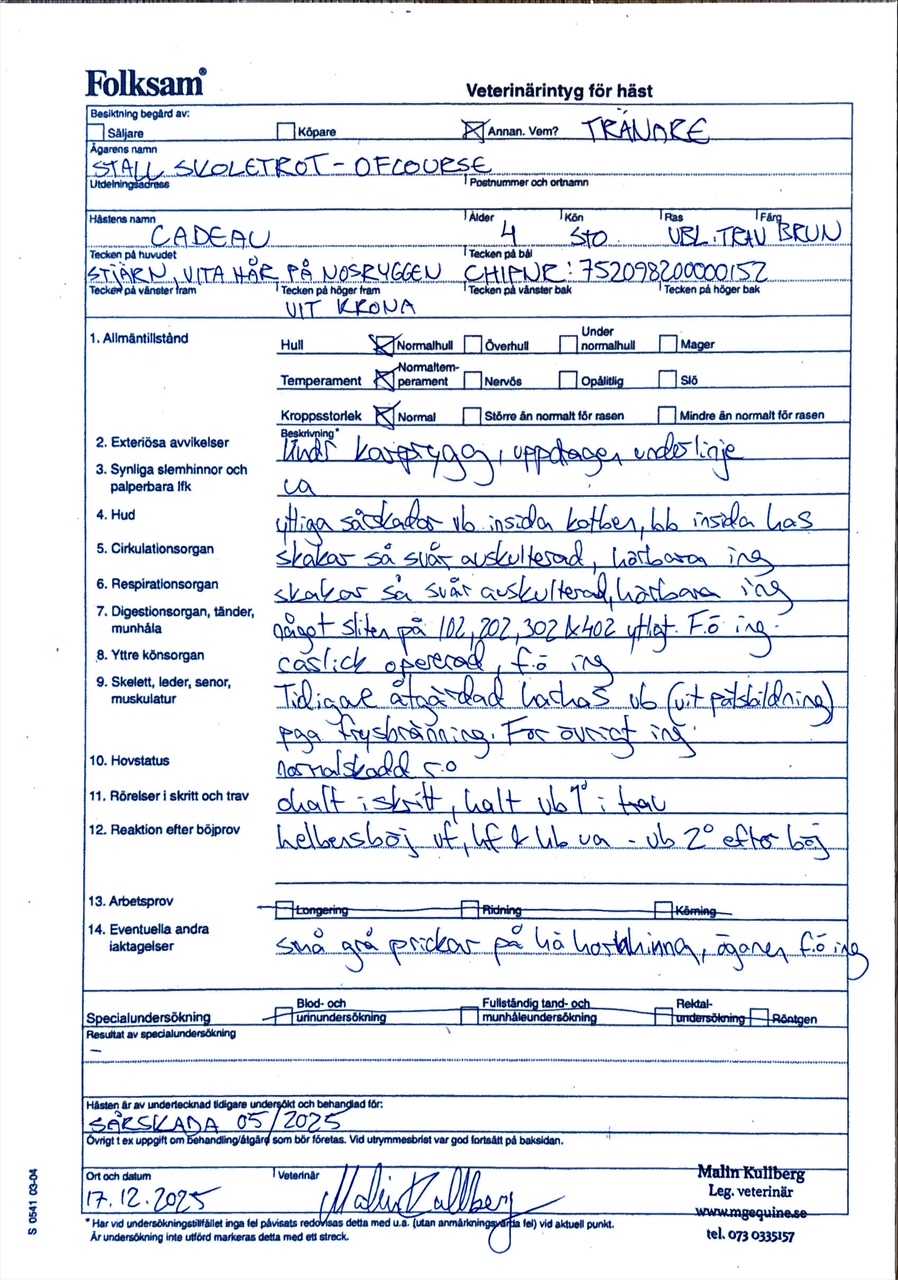 Folksam®
Veterinärintyg för häst
Besiktning begärd av:
Säljare Köpare Annan. Vem? TRÄNARE
Ägarens namn
STALL SKOLETROT - OFCOURSE
Utdelningsadress Postnummer och ortnamn
Hästens namn Ålder Kön Ras Färg
CADEAU 4 STO VBL.TRAV BRUN
Tecken på huvudet Tecken på bål
STJÄRN, VITA HÅR PÅ NOSRYGGEN CHIPNR: 752098200000152
Tecken på vänster fram Tecken på höger fram Tecken på vänster bak Tecken på höger bak
VIT KRONA
1. Allmäntillstånd
Hull Normalhull Överhull Under normalhull Mager
Temperament Normaltemperament Nervös Opålitlig Slö
Kroppsstorlek Normal Större än normalt för rasen Mindre än normalt för rasen
Beskrivning*
2. Exteriösa avvikelser karprygg, uppdragen underlinje
3. Synliga slemhinnor och palperbara lfk ua
4. Hud ytliga sårskador vb insida kotben, bb insida has
5. Cirkulationsorgan skakar så svår auskulterad, hörbara ing
6. Respirationsorgan skakar så svår auskulterad, hörbara ing
7. Digestionsorgan, tänder, munhåla något sliten på 102, 202, 302 & 402 ytligt. F.ö ing.
8. Yttre könsorgan caslick opererad, f.ö ing
9. Skelett, leder, senor, muskulatur Tidigare åtgärdad has vb (vit pälsbildning)
pga frysbränning. För övrigt ing.
10. Hovstatus normalskodd r.o
11. Rörelser i skritt och trav ohalt i skritt, halt vb 1° i trav
12. Reaktion efter böjprov helbensböj vf, hf & hb ua - vb 2° efter böj
13. Arbetsprov Longering Ridning Körning
14. Eventuella andra iaktagelser små grå prickar på hö hornhinna, ögonen f.ö ing
Specialundersökning Blod- och urinundersökning Fullständig tand- och munhåleundersökning Rektal- undersökning Röntgen
Resultat av specialundersökning
–
Hästen är av undertecknad tidigare undersökt och behandlad för:
SÅRSKADA 05/2025
Övrigt t ex uppgift om behandling/åtgärd som bör företas. Vid utrymmesbrist var god fortsätt på baksidan.
Ort och datum Veterinär
17.12.2025 Malin Kullberg
Malin Kullberg
Leg. veterinär
www.mgequine.se
tel. 073 0335157
* Har vid undersökningstillfället inga fel påvisats redovisas detta med u.a. (utan anmärkningsvärda fel) vid aktuell punkt.
Är undersökning inte utförd markeras detta med ett streck.
S 0541 03-04